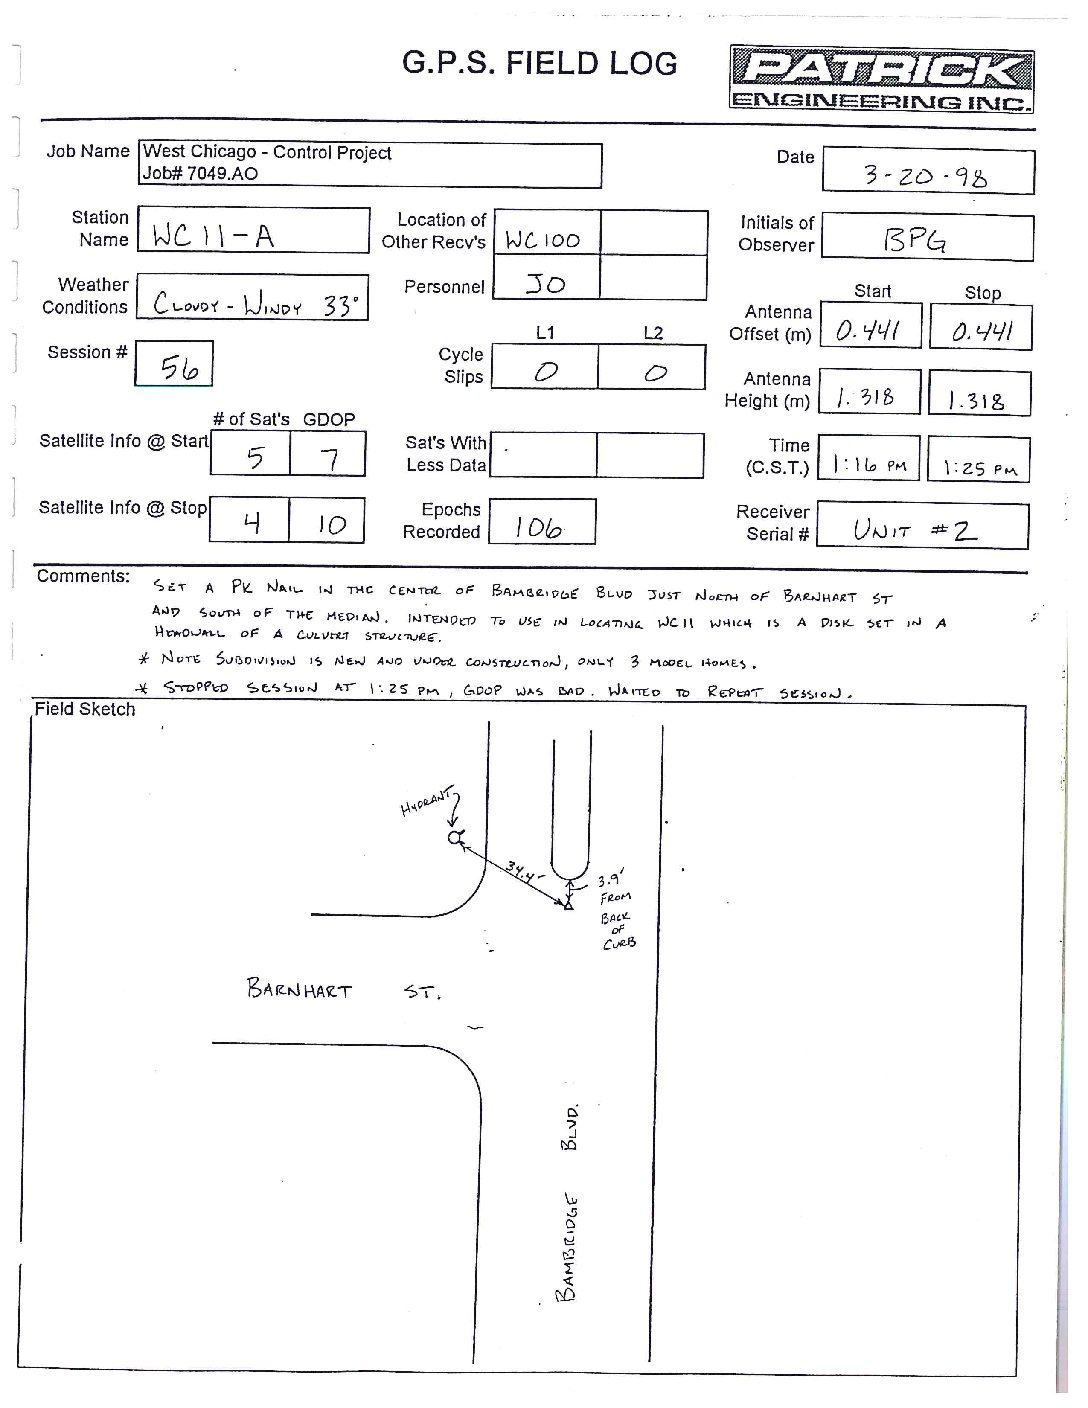 G.P.S. FIELD LOG
PATRICK
ENGINEERING INC.
Job Name
West Chicago - Control Project
Job# 7049.AO
Date
3-20-98
Station
Name
WC11-A
Location of
Other Recv's
WC100
Initials of
Observer
BPG
Weather
Conditions
CLOUDY - WINDY 33°
Personnel
JO
Start Stop
Antenna
Offset (m)
0.441 0.441
Session #
56
L1 L2
Cycle
Slips
0 0
Antenna
Height (m)
1.318 1.318
# of Sat's GDOP
Satellite Info @ Start
5 7
Sat's With
Less Data
Time
(C.S.T.)
1:16 PM 1:25 PM
Satellite Info @ Stop
4 10
Epochs
Recorded
106
Receiver
Serial #
UNIT #2
Comments:
SET A PK NAIL IN THE CENTER OF BAMBRIDGE BLVD JUST NORTH OF BARNHART ST
AND SOUTH OF THE MEDIAN. INTENDED TO USE IN LOCATING WC11 WHICH IS A DISK SET IN A
HEADWALL OF A CULVERT STRUCTURE.
* NOTE SUBDIVISION IS NEW AND UNDER CONSTRUCTION, ONLY 3 MODEL HOMES.
* STOPPED SESSION AT 1:25 PM, GDOP WAS BAD. WAITED TO REPEAT SESSION.
Field Sketch
HYDRANT
34.4'
3.9'
FROM
BACK
OF
CURB
BARNHART ST.
BAMBRIDGE BLVD.